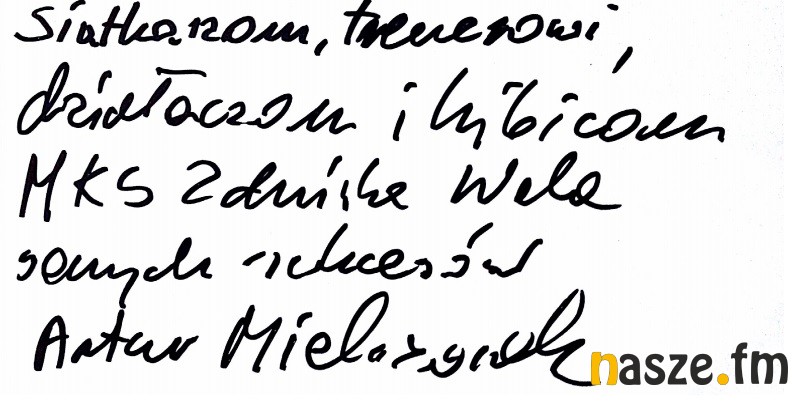 Siatkarzom, trenerowi,
działaczom i kibicom
MKS Zduńska Wola
samych sukcesów
Artur
nasze.fm